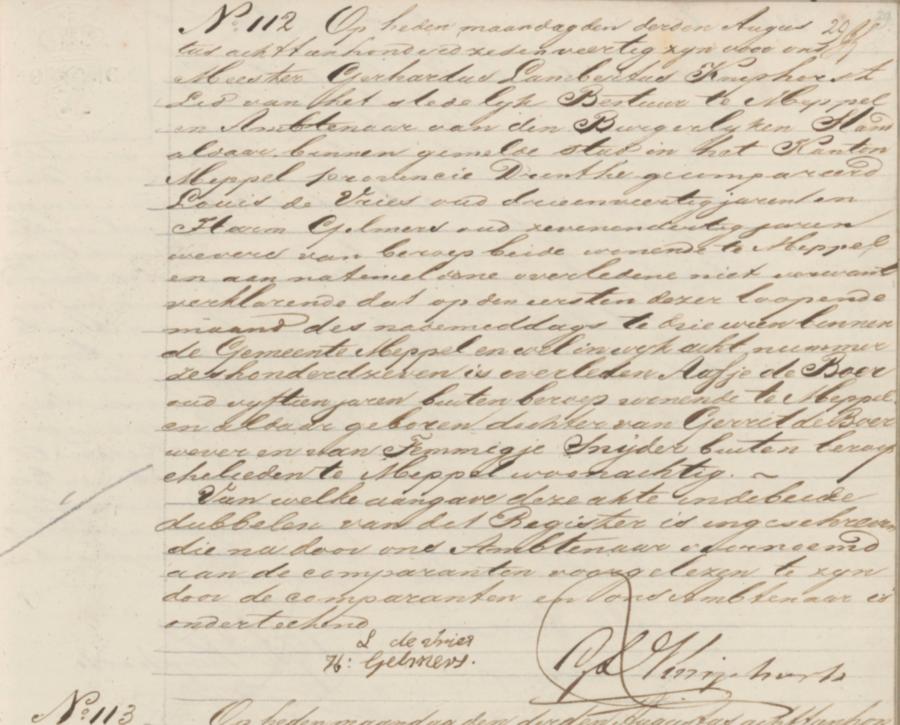 No. 112 Op heden maandag den derden Augus
tus achttienhonderd zesenveertig zyn voor ons
Meester Gerhardus Lambertus Kniphorst
Lid van het stedelyk Bestuur te Meppel
en Ambtenaar van den Burgerlyken Stand
aldaar binnen gemelde stad in het Kanton
Meppel provincie Drenthe gecompareerd
Louis de Vries oud drieenveertig jaren en
Harm Gelmers oud zevenendertig jaren
wevers van beroep beide wonende te Meppel
en aan natemeldene overledene niet verwant
verklarende dat op den eersten dezer loopende
maand des nademiddags te drie uren binnen
de Gemeente Meppel en wel in wyk acht nummer
zeshonderdzeven is overleden Aafje de Boer
oud vyftien jaren buiten beroep wonende te Meppel
en aldaar geboren dochter van Gerrit de Boer
wever en van Femmigje Snijder buiten beroep
echelieden te Meppel woonachtig. ~
Van welke aangave deze akte in de beide
dubbelen van het Register is ingeschreven
die na door ons Ambtenaar voornoemd
aan de comparanten voorgelezen te zyn
door de comparanten en ons Ambtenaar is
onderteekend
L de Vries
H: Gelmers.
Kniphorst
No. 113 Op heden maandag den derden Augustus achttienhon